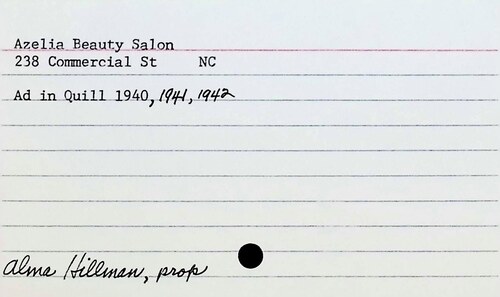 Azelia Beauty Salon
238 Commercial St NC
Ad in Quill 1940, 1941, 1942
Alma Hillman, prop